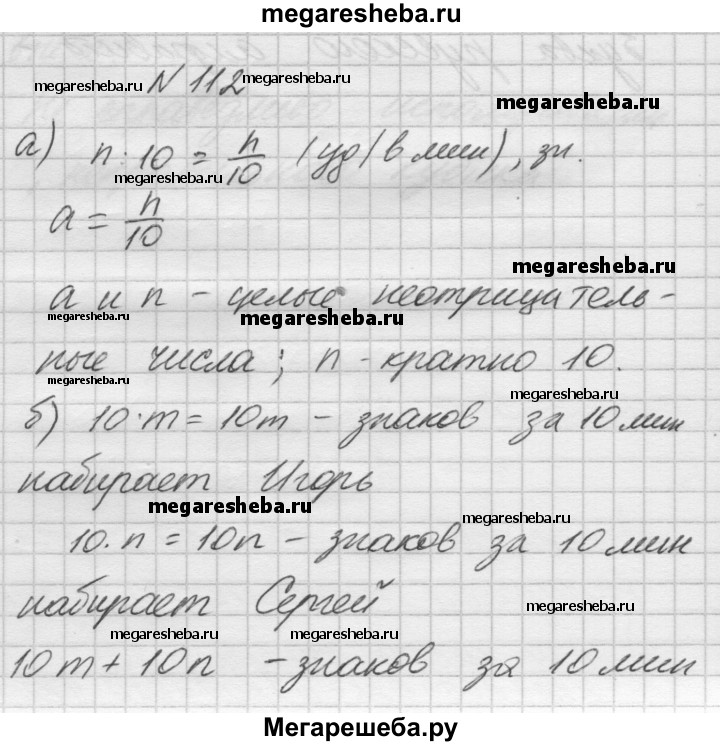 megaresheba.ru
megaresheba.ru № 112 megaresheba.ru
megaresheba.ru
а) n : 10 = n/10 (уд/в мин), зн.
megaresheba.ru
a = n/10
megaresheba.ru
а и n - целые неотрицатель-
megaresheba.ru megaresheba.ru
ные числа; n - кратно 10.
megaresheba.ru megaresheba.ru
б) 10·m = 10m - знаков за 10 мин
набирает Игорь
megaresheba.ru megaresheba.ru
10·n = 10n - знаков за 10 мин
набирает Сергей
megaresheba.ru
megaresheba.ru megaresheba.ru
10m + 10n - знаков за 10 мин
Мегарешеба.ру